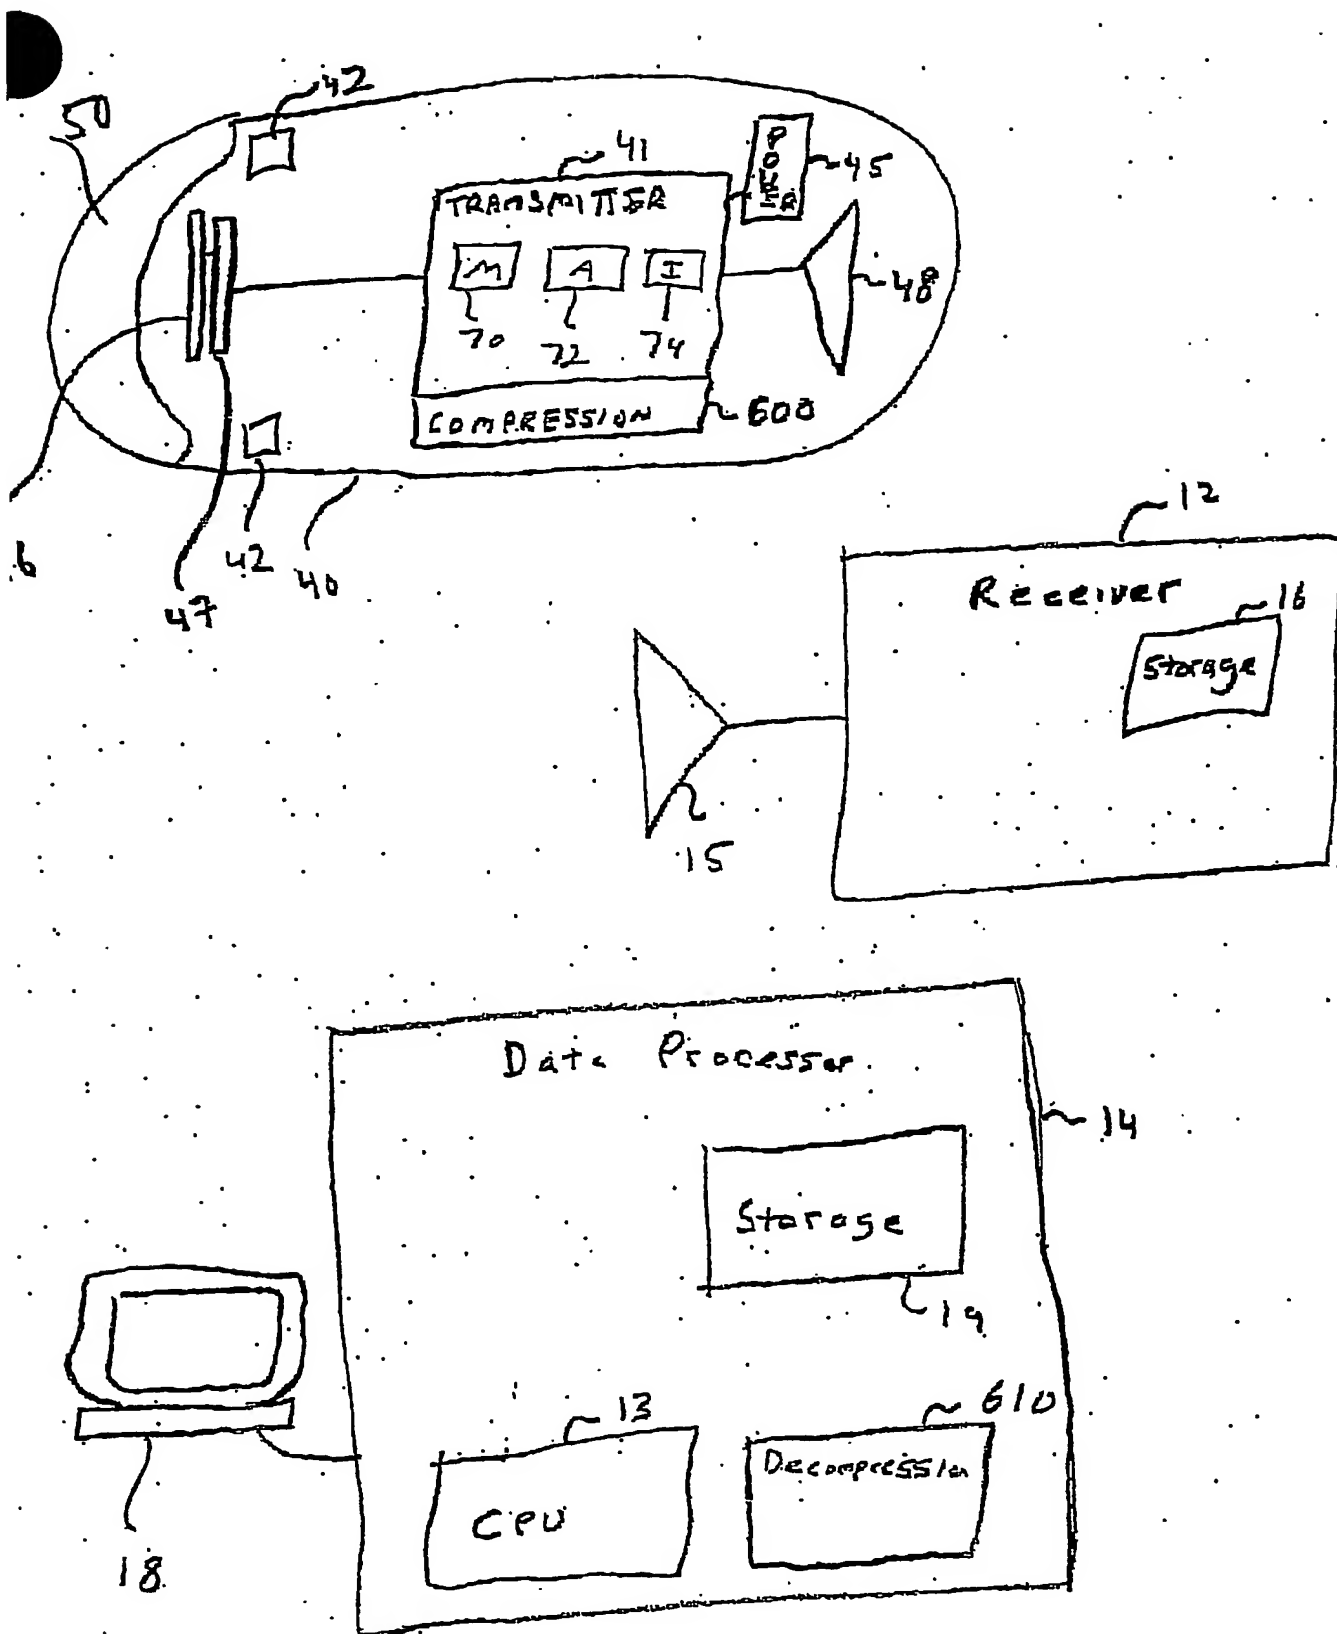 50
42
41
POWER
45
TRANSMITTER
M
A
I
70
72
74
48
COMPRESSION
600
6
47
42
40
12
Receiver
16
Storage
15
Data Processor
14
Storage
19
13
610
CPU
Decompression
18